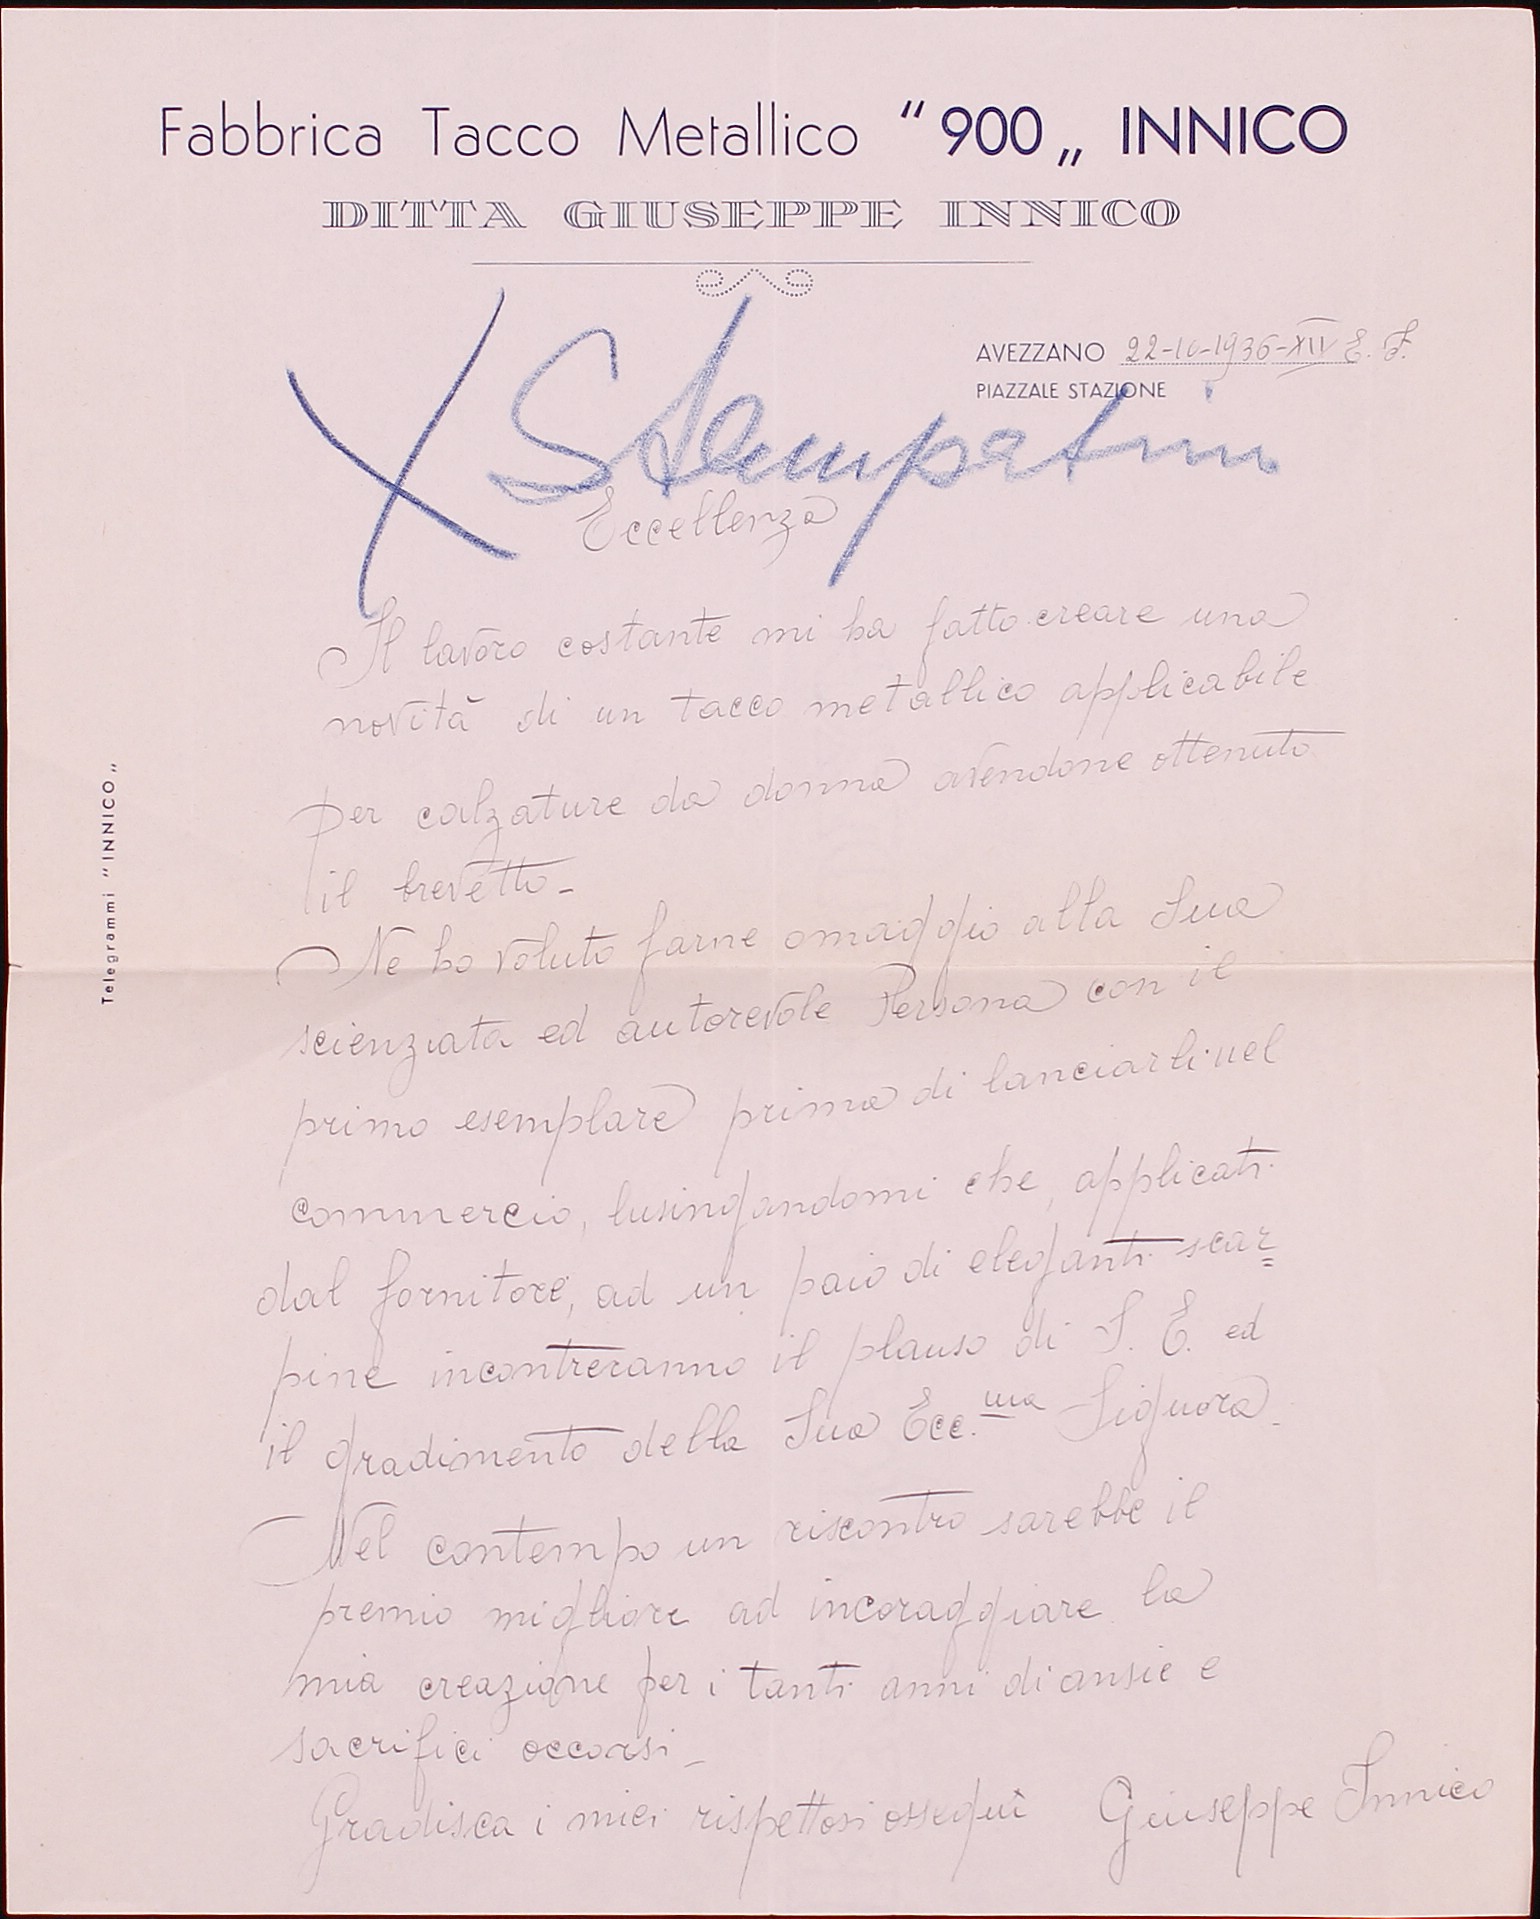 Fabbrica Tacco Metallico "900„ INNICO
DITTA GIUSEPPE INNICO
AVEZZANO 22-10-1936-XIV E. F.
PIAZZALE STAZIONE
X Stampatini
Eccellenza
Il lavoro costante mi ha fatto creare una
novità di un tacco metallico applicabile
per calzature da donna avendone ottenuto
il brevetto-
Ne ho voluto farne omaggio alla Sua
scienziata ed autorevole Persona con il
primo esemplare prima di lanciarli nel
commercio, lusingandomi che, applicati
dal fornitore, ad un paio di eleganti scar=
pine incontreranno il plauso di S. E. ed
il gradimento della Sua Ecc.ma Signora-
Nel contempo un riscontro sarebbe il
premio migliore ad incoraggiare la
mia creazione per i tanti anni di ansie e
sacrifici occorsi-
Gradisca i miei rispettosi ossequi Giuseppe Innico
Telegrammi "INNICO„